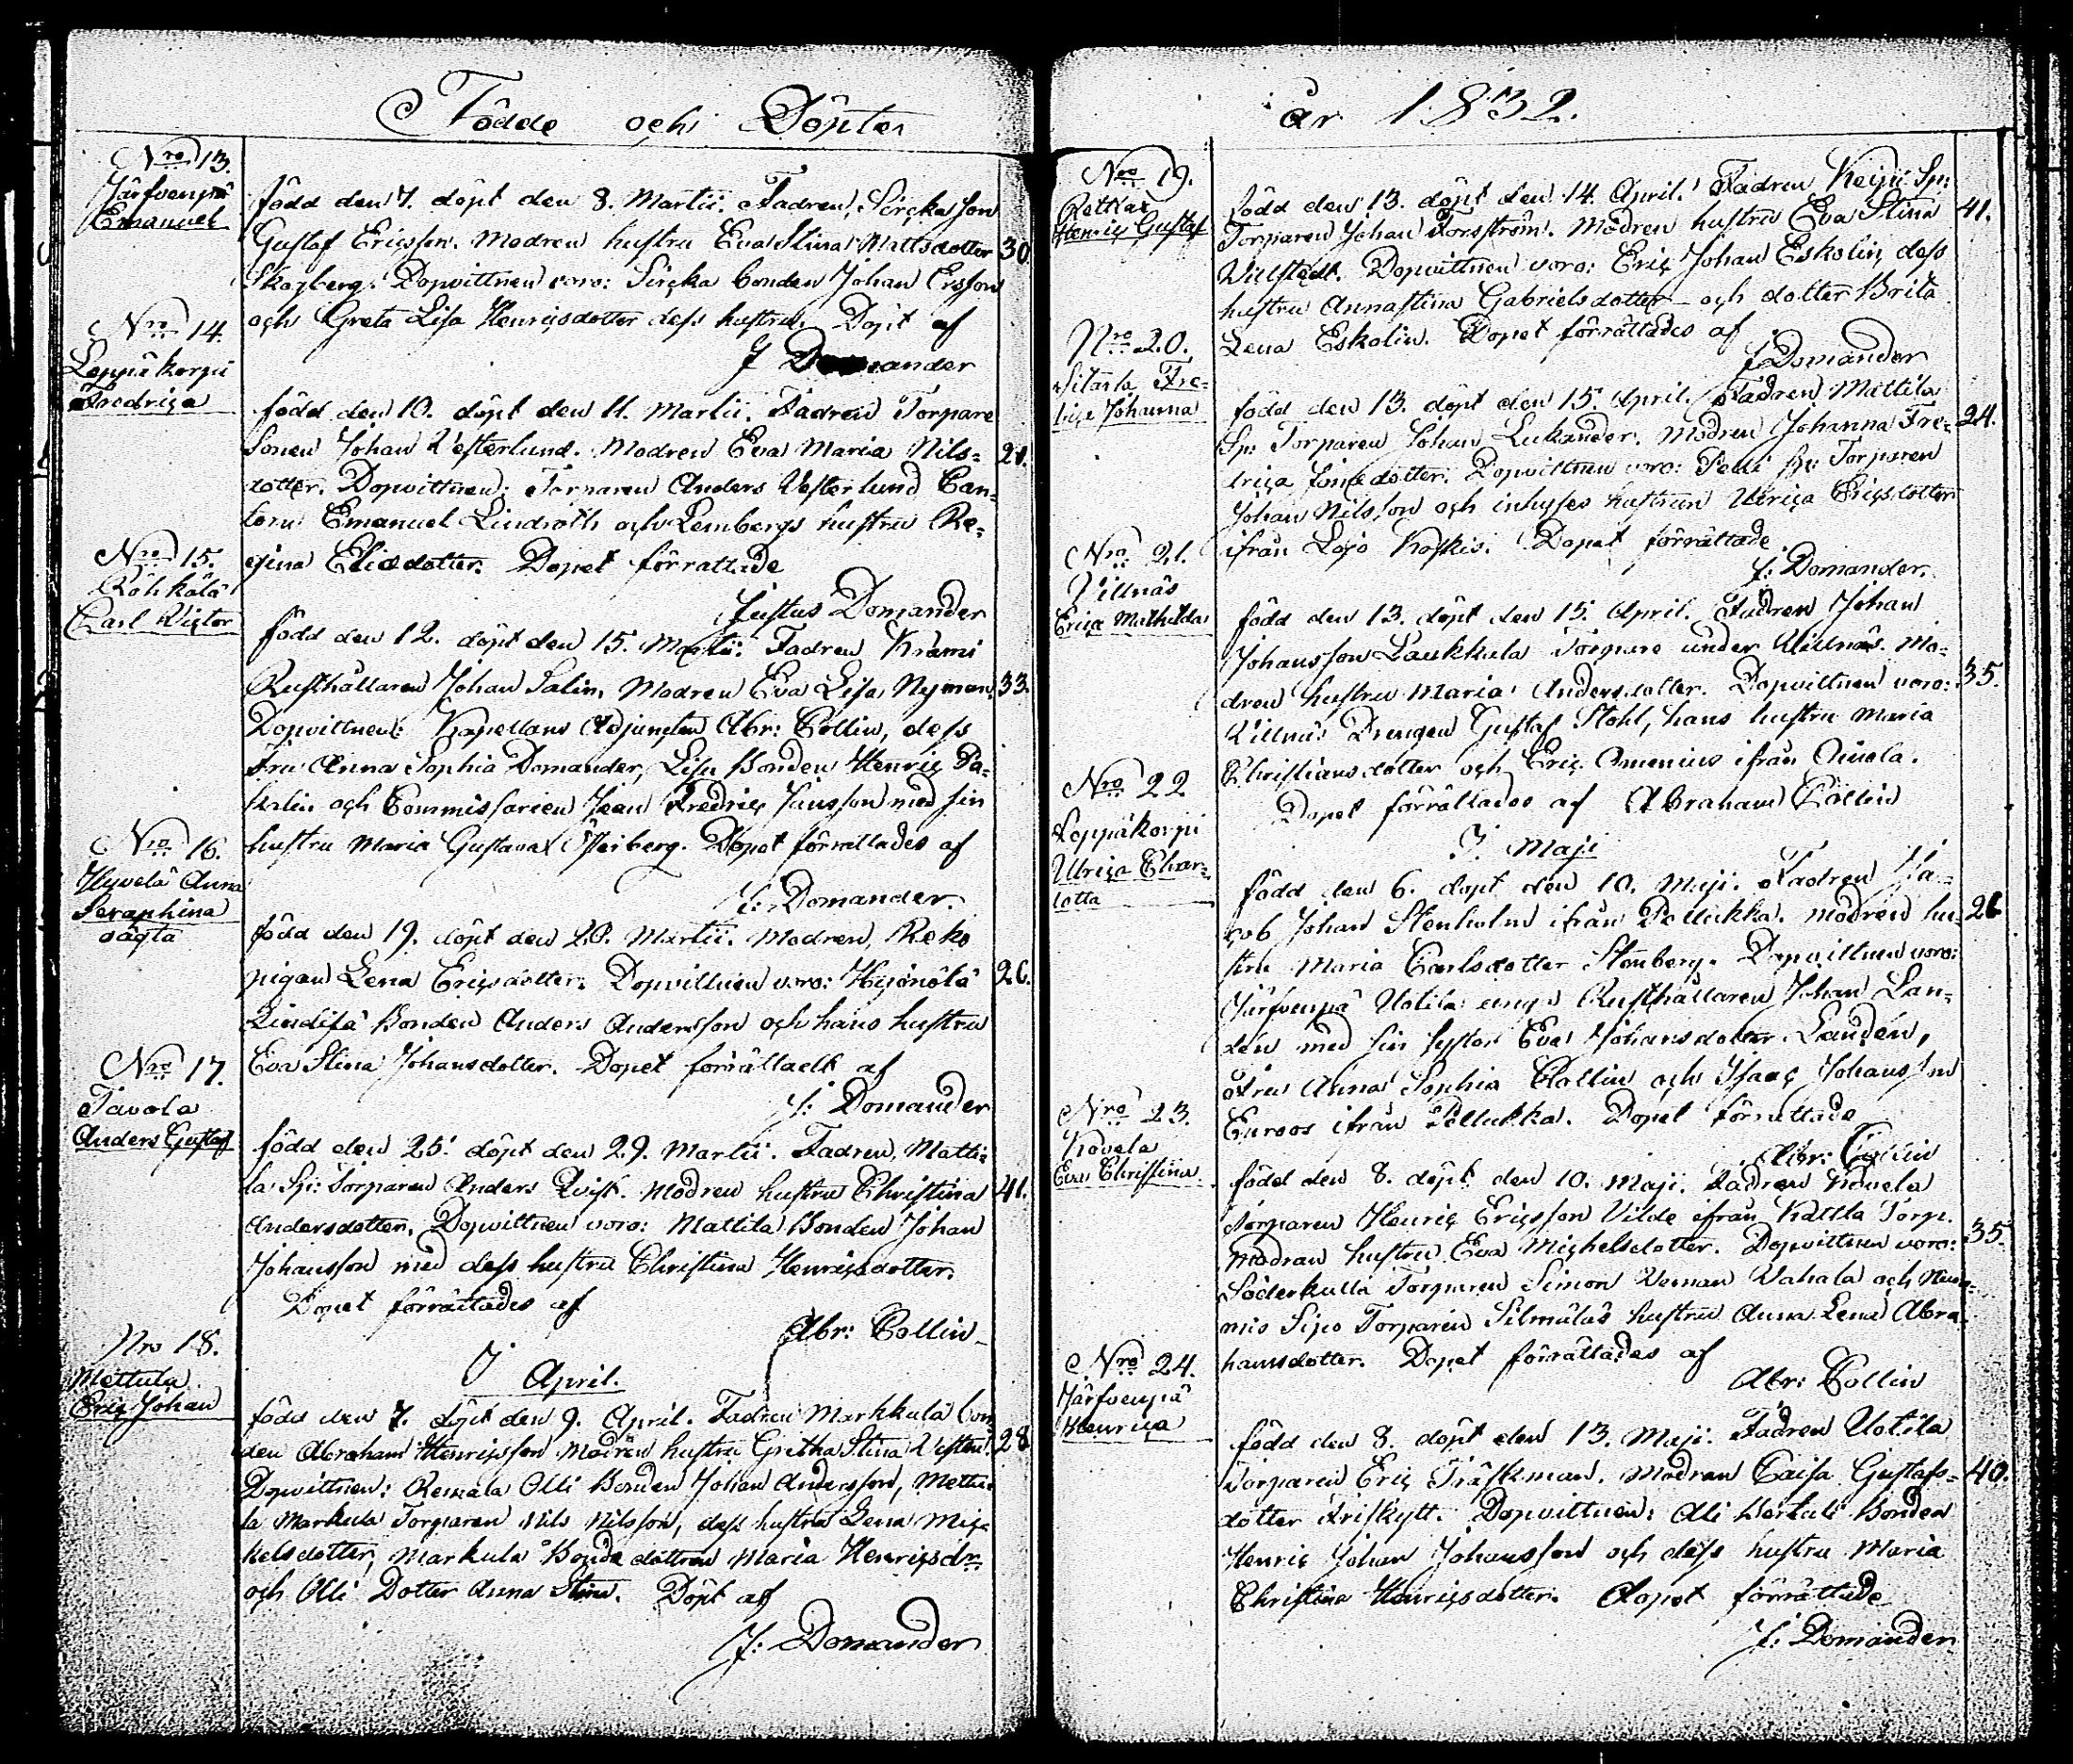 Födde och Döpter
Nro 13.
Järfvenpä
Emanuel
född den 7. döpt den 8. Martii. Fadren, Sirçka son
Gustaf Ericsson. Modren hustru Eva Stina Mattsdotter 30.
Skogberg. Dopvittnen voro: Sirçka bonden Johan Ersson
och Greta Lisa Henriçsdotter dess hustru. Döpt af
J Domander
Nro 14.
Leppäkorpi
Fredriça
född den 10. döpt den 11. Martii. Fadren Torpare
Sonen Johan Vesterlund. Modren Eva Maria Nils= 21.
dotter. Dopvittnen: Torparen Anders Vesterlund Can-
torn Emanuel Lindroth och Lembergs hustru Re-
gina Elisdotter. Dopet förrattade
Justus Domander
Nro 15.
Röhkälä
Carl Victor
född den 12. döpt den 15. Martii. Fadren Krämi
Rusthållaren Johan Salin, Modren Eva Lisa Nyman, 33.
Dopvittnen: Kapellans Adjuncten Abr: Collin, dess
Fru Anna Sophia Domander, Bonden Henriç
och Commissarien Jean Fredriç Jansson med sin
hustru Maria Gustava Österberg. Dopet förrattades af
J: Domander.
Nro 16.
Hyvelä Anna
Seraphina
oägta
född den 19. döpt den 20. Martii. Modren, Reko
pigan Lena Eriçsdotter. Dopvittnen voro: 26.
Bonden Anders Andersson och hans hustru
Eva Stina Johansdotter. Dopet förrättadt af
J: Domander
Nro 17.
Tavola
Anders Gustaf
född den 25. döpt den 29. Martii. Fadren, Matti-
la Sp: Torparen Anders Qvist. Modren hustru Christina 41.
Andersdotter. Dopvittnen voro: Mattila Bonden Johan
Johansson med dess hustru Christina Henriçsdotter.
Dopet förrättades af
Abr: Collin
I April.
Nro 18.
Mettula
Eriç Johan
född den 7. döpt den 9. April. Fadren Markkula bon
den Abraham Henriçsson Modren hustru Gretha Stina 28
Dopvittnen: Remala Olli Bonden Johan Andersson, Mettu-
la Markula Torparen Nils Nilsson, dess hustru Lena Miç-
kelsdotter, Markula Bonde dottren Maria Henriçsdr
och Olli Dotter Anna Stina. Döpt af
J: Domander
år 1832.
Nro 19.
Rettkax
Henriç Gustaf
född den 13. döpt den 14. April. Fadren Sp:
Torparen Johan Forsström. Modren hustru Eva Stina 41.
Villstedt. Dopvittnen voro: Eriç Johan Eskolin, dess
hustru Anna Stina Gabrielsdotter och dotter Brita
Lena Eskolin. Dopet förrättades af
J Domander
Nro 20.
Fre-
Johanna
född den 13. döpt den 15. April. Fadren Mattila
Sp: Torparen Johan Lukander. Modren Johanna Fre- 24.
driça dotter. Dopvittnen voro: Sp: Torparen
Johan Nilsson och inhyses hustrun Ulriça Eriçsdotter
ifrån Lojo Koskis. Dopet förrättade
J: Domander.
Nro 21.
Villnäs
Eriça Mathilda
född den 13. döpt den 15. April. Fadren Johan
Johansson Laukkula Torpare under Villnäs. Mo-
dren hustru Maria Andersdotter. Dopvittnen voro: 35.
Villnäs Drengen Gustaf Stohl, hans hustru Maria
Christiansdotter och Eriç Omenius ifrån
Dopet förrättades af Abraham Collin
I Maji
Nro 22
Leppäkorpi
Ulriça Char-
lotta
född den 6. döpt den 10. Maji. Fadren Ja-
çob Johan Stenholm ifrån Pellukka. Modren hu- 26.
stru Maria Carlsdotter Stenberg. Dopvittnen voro:
Järfvenpä Uotila unga Rusthållaren Johan Lan-
dén med sin syster Eva Johansdotter Landén,
Fru Anna Sophia Collin och Isaaç Johansson
Enroos ifrån Pellukka. Dopet förrattade
Abr: Collin
Nro 23.
Kovela
Eva Christina
född den 8. döpt den 10. Maji. Fadren Kovela
Torparen Henriç Eriçsson Vilde ifrån Kattla Torp.
Modran hustru Eva Miçhelsdotter. Dopvittnen voro: 35.
Söderkulla Torparen Simon Veman Vahala och Num-
mis Sipo Torparen Silmäläs hustru Anna Lena Abra-
hamsdotter. Dopet förrättades af
Abr: Collin
Nro 24.
Järfvenpä
Henriça
född den 8. döpt den 13. Maji. Fadren Uotila
Torparen Eriç Träskman. Modran Caisa Gustafs- 40.
dotter Friskytt. Dopvittnen: Olli Bonden
Henriç Johan Johansson och dess hustru Maria
Christina Henriçsdotter. Dopet förrättade
J: Domander